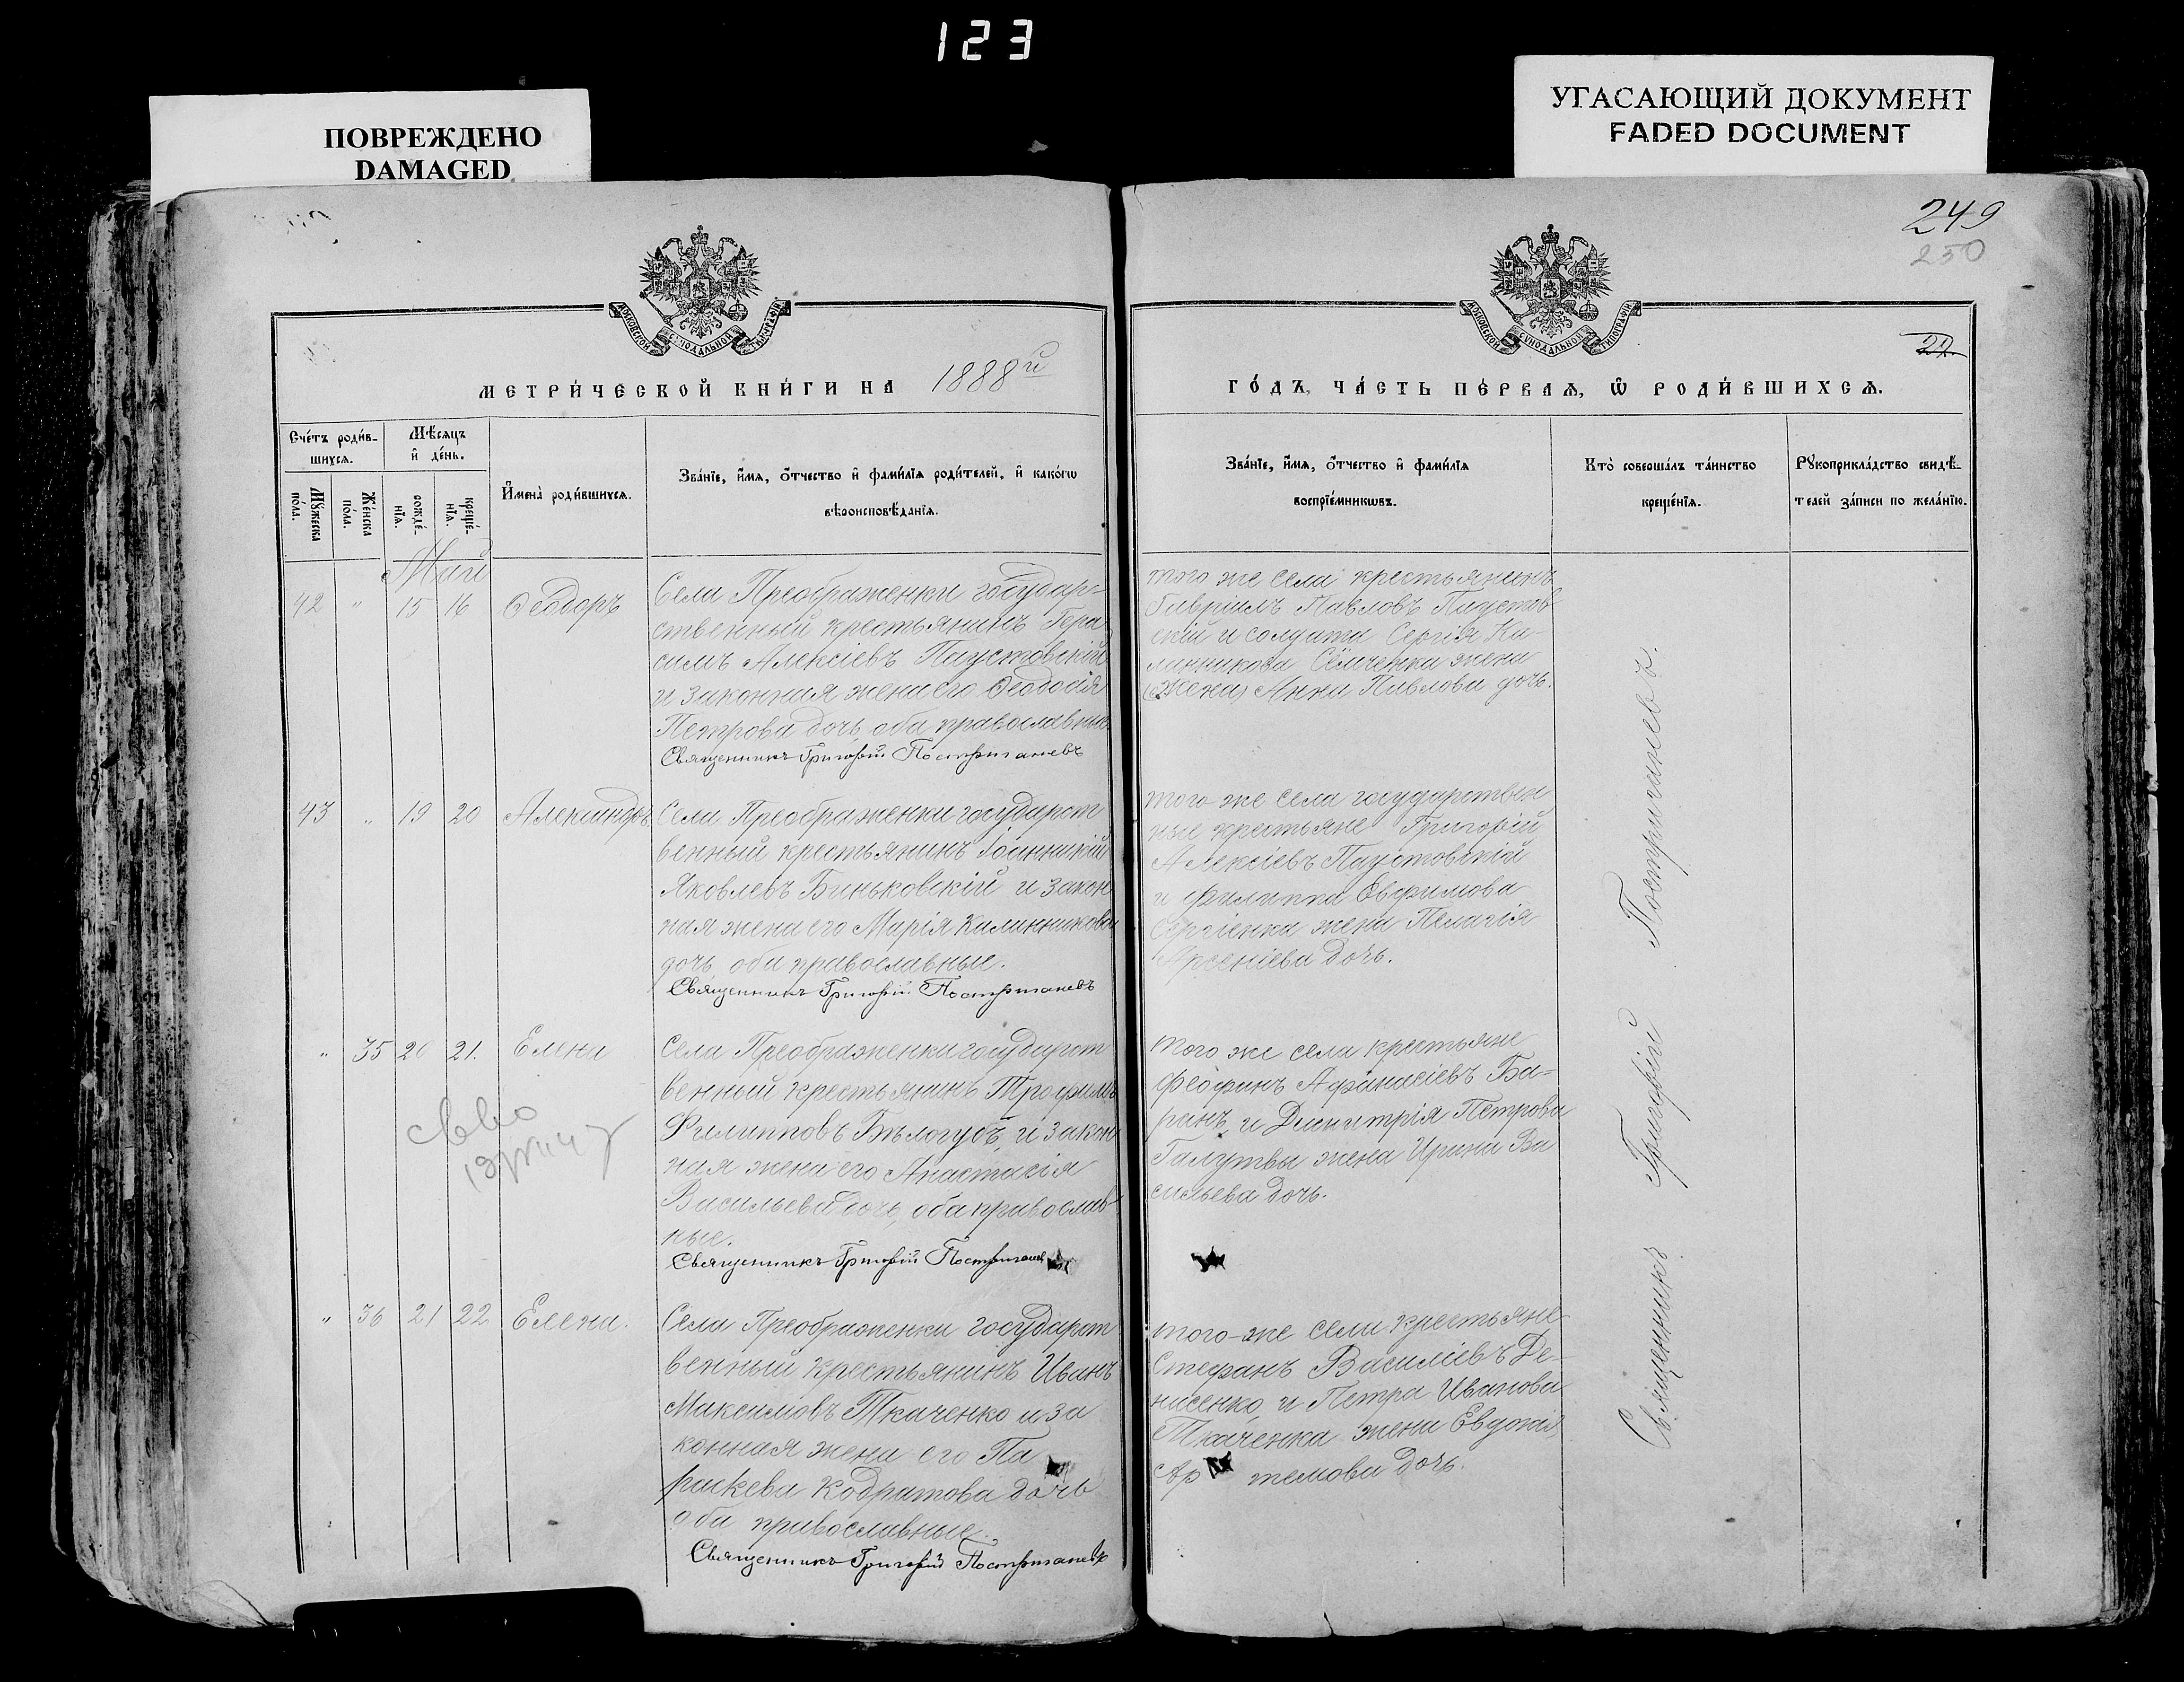 123
ПОВРЕЖДЕНО
DAMAGED
УГАСАЮЩИЙ ДОКУМЕНТ
FADED DOCUMENT
249
250
МОСКОВСКОЙ СУНОДАЛЬНОЙ ТИПОГРАФІИ
МОСКОВСКОЙ СУНОДАЛЬНОЙ ТИПОГРАФІИ
22
МЕТРИ́ЧЕСКОЙ КНИ́ГИ НА 1888й
ГО́ДЪ, ЧА́СТЬ ПЕ́РВАЯ, Ѡ РОДИ́ВШИХСЯ.
Сче́тъ роди́в-
шихся.
Мѣ́сяцъ
и де́нь.
Му́жеска
по́ла.
Же́нска
по́ла.
рожде́-
нія.
креще́-
нія.
Имена̀ роди́вшихся.
Зва́ніе, и́мя, о́тчество и фами́лія роди́телей, и како́гѡ
вѣроисповѣ́данія.
Зва́ніе, и́мя, о́тчество и фами́лія
воспріе́мникѡвъ.
Кто̀ соверша́лъ та́инство
креще́нія.
Рукоприкла́дство свидѣ́-
телей за́писи по жела́нію.
Май
42 " 15 16 Ѳеодоръ
Села Преображенки государ-
ственный крестьянинъ Гера
симъ Алексіевъ Паустовскій
и законная жена его Ѳеодосія
Петрова дочь, оба православные
Священникъ Григорій Постригачевъ
того же села крестьянинъ
Гавріилъ Павловъ Паустов
скій и солдата Сергія Ка-
линникова Сёмченка жена
(жена) Анна Павлова дочь.
43 " 19 20 Александръ
Села Преображенки государст
венный крестьянинъ Іоанникій
Яковлевъ Биньковскій и закон
ная жена его Марія Калинникова
дочь, оба православные.
Священникъ Григорій Постригачевъ
того же села государствен
ные крестьяне Григорій
Алексіевъ Паустовскій
и Филиппа Евфимова
Сергіенка жена Пелагія
Арсеніева дочь.
" 35 20 21. Елена
Села Преображенки государст
венный крестьянинъ Трофимъ
Филипповъ Бѣлогубъ, и закон
ная жена его Анастасія
Васильева дочь, оба православ
ные.
Священникъ Григорій Постригачев
того же села крестьяне
Феофанъ Афанасіевъ Ба-
ранъ и Димитрія Петрова
Галутвы жена Ирина Ва
сильева дочь.
" 36 21 22 Елена.
Села Преображенки государст
венный крестьянинъ Иванъ
Максимовъ Ткаченко и за
конная жена его Па
раскева Кодратова дочь
оба православные.
Священникъ Григорій Постригачевъ
того-же села крестьяне
Стефанъ Василіевъ Де-
нисенко, и Петра Иванова
Ткаченка жена Евдокія
Ар темова дочь.
Священникъ Григорій Постригачевъ.